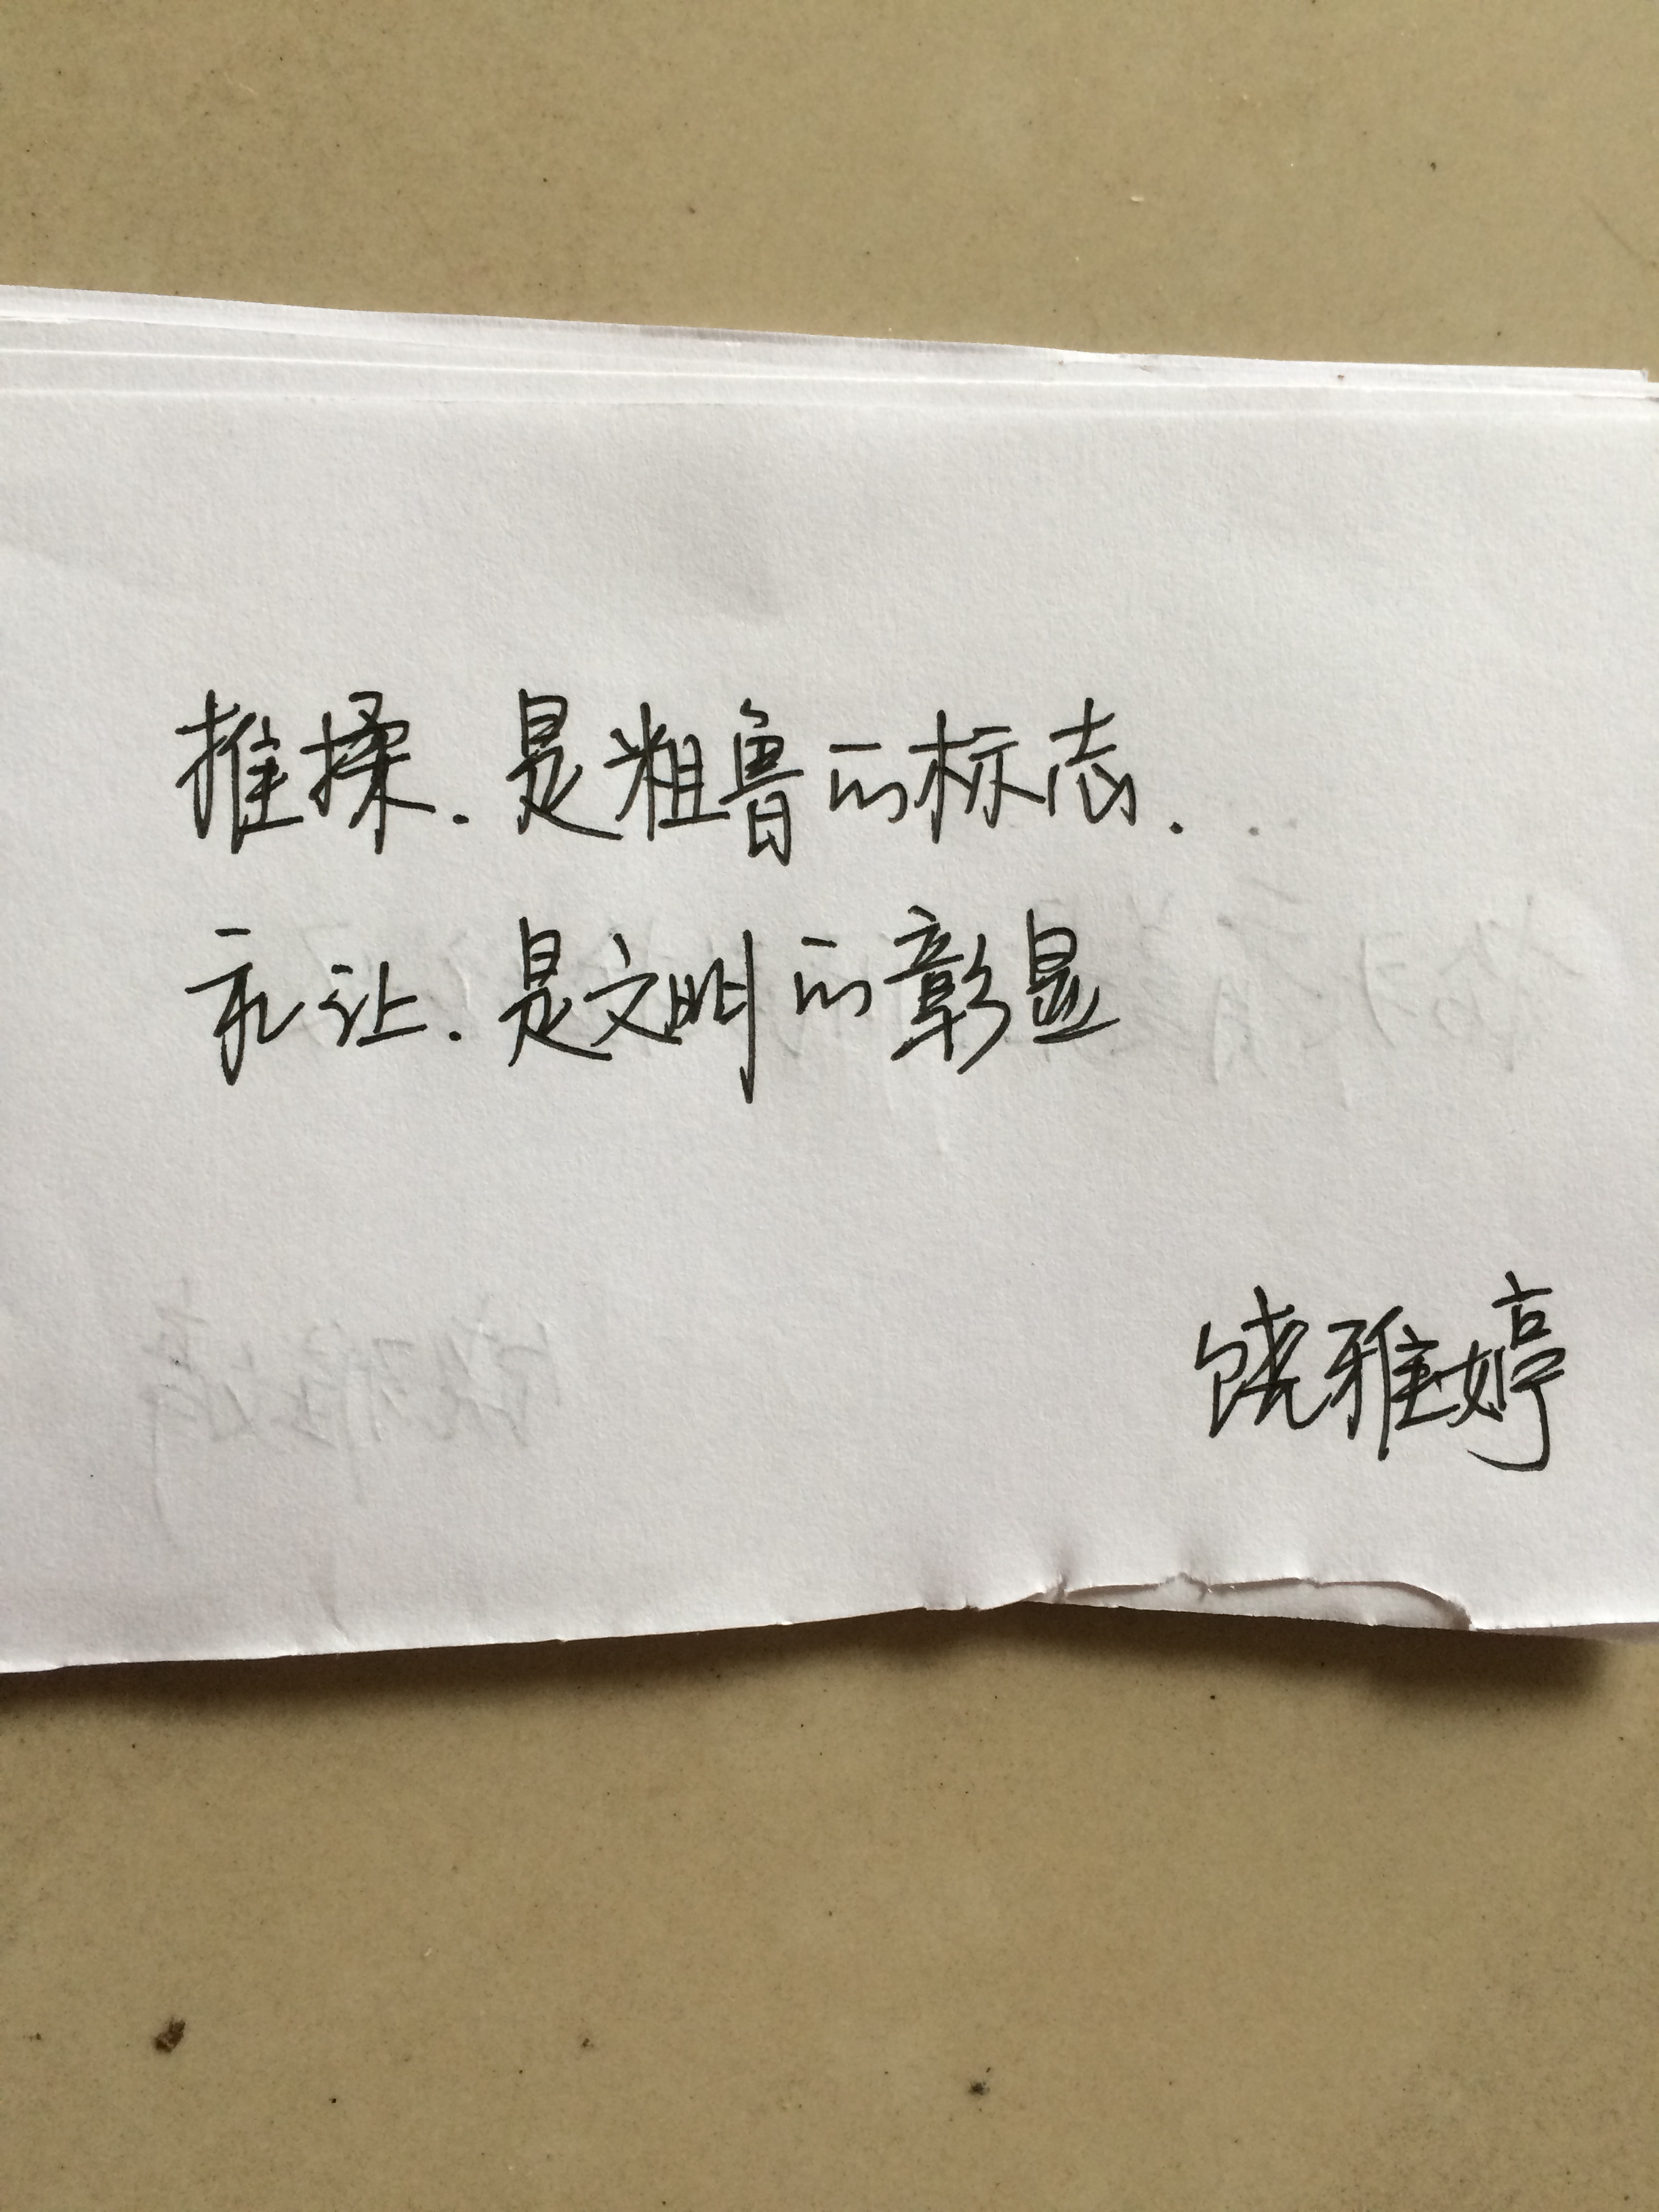 推揉.是粗鲁的标志.
礼让.是文明的彰显
饶雅婷